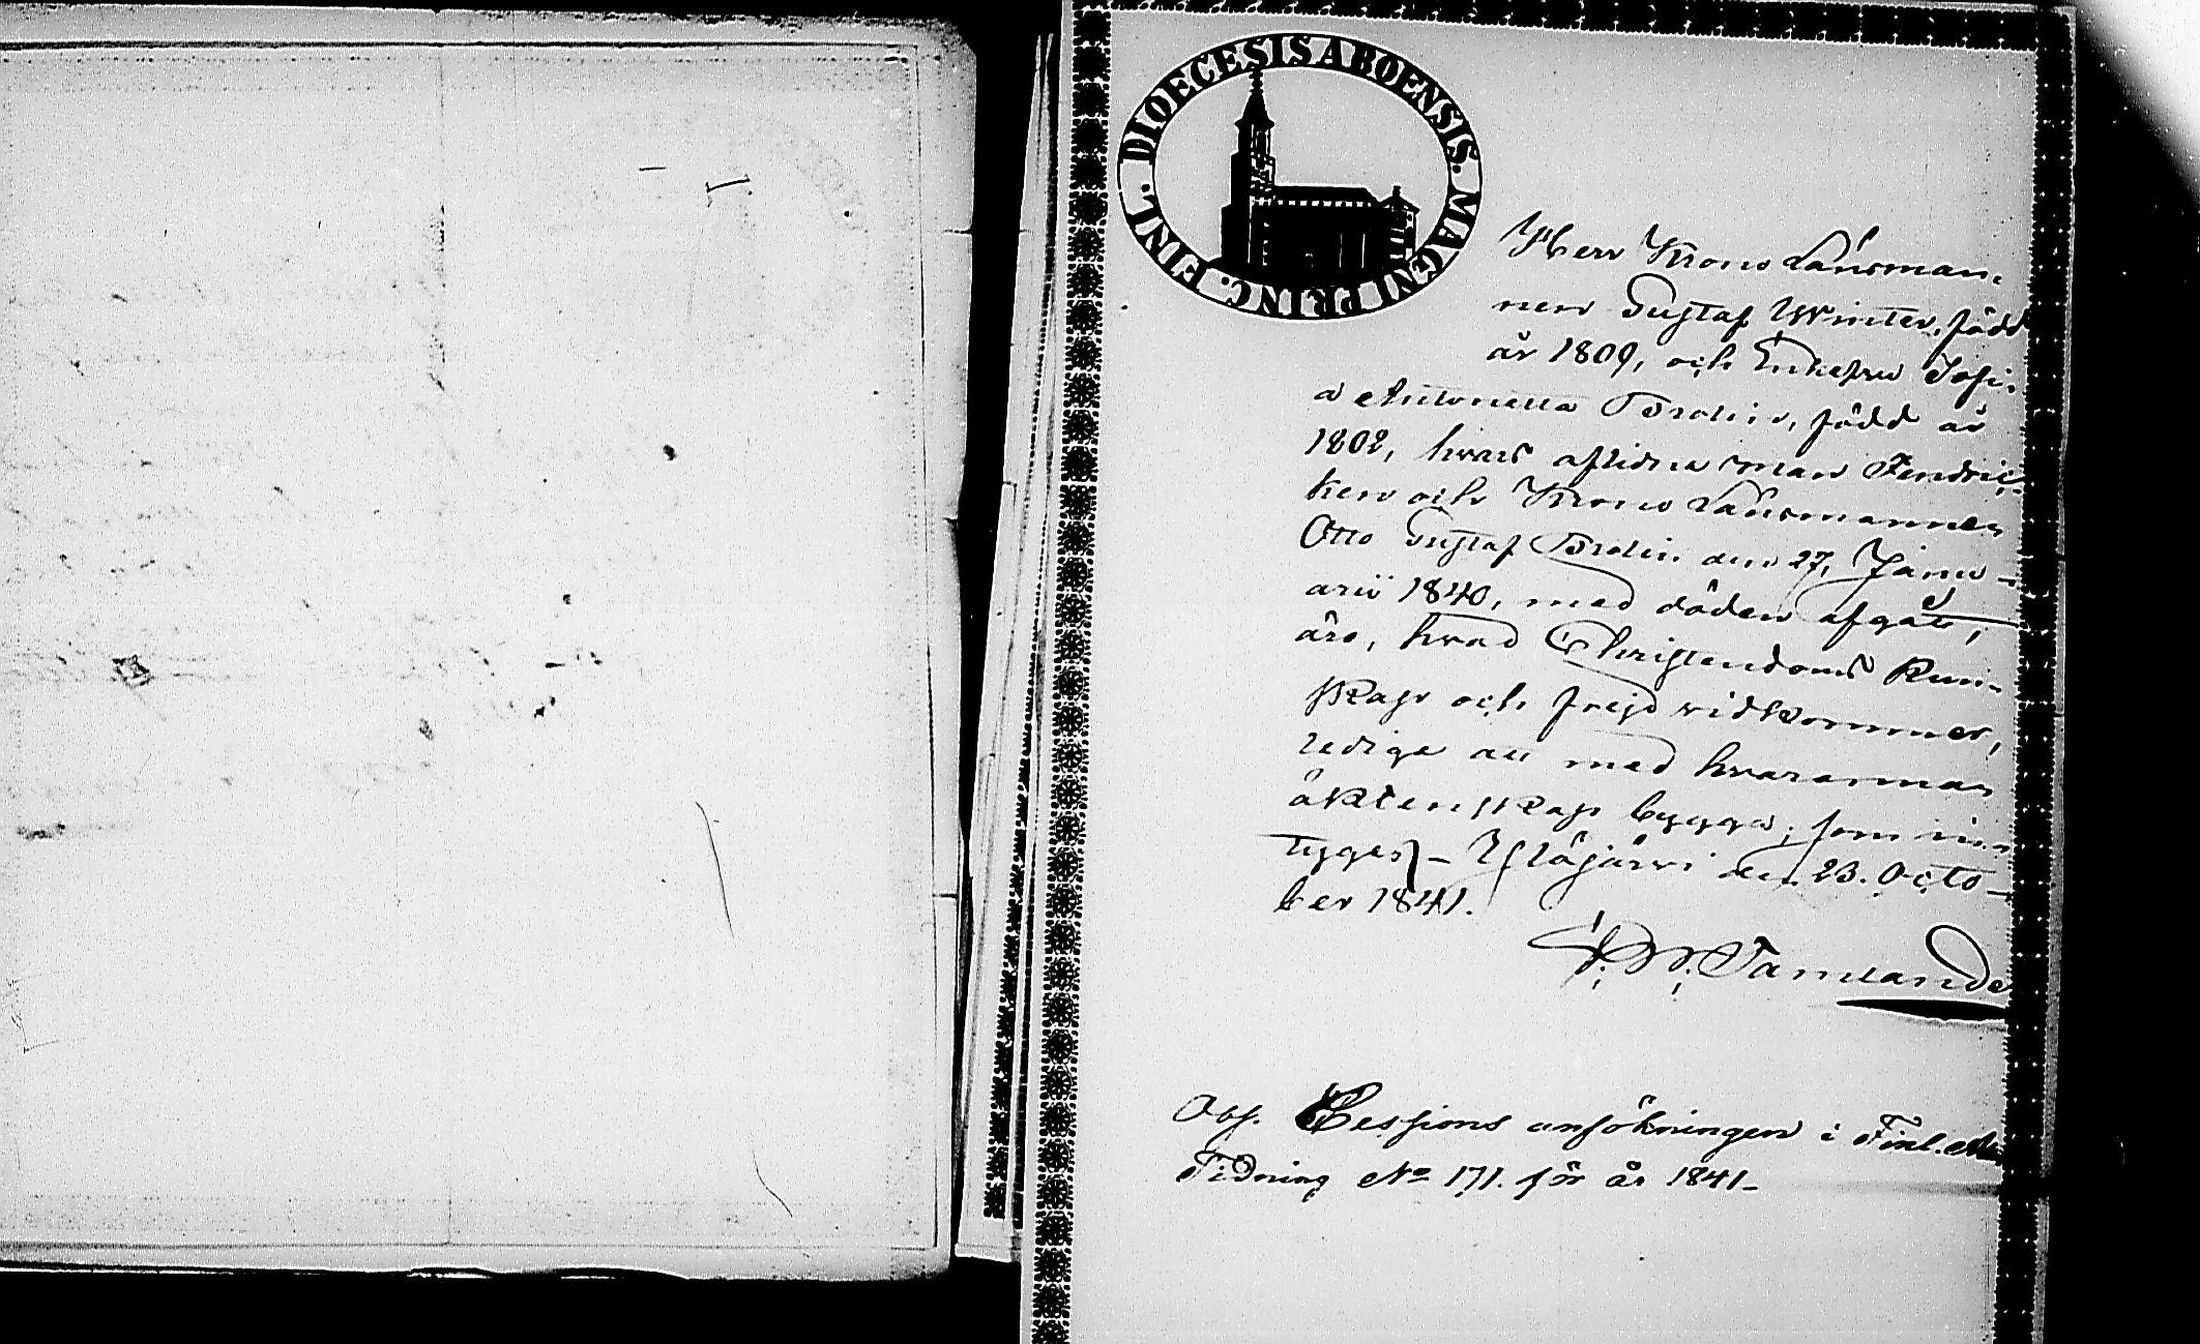 DIOECESIS ABOENSIS. MAGNI PRINC. FINL.
Herr Krono Länsman-
nen Gustaf Winter, född
år 1809, och Enkefru Sofi-
a Antonetta Brolin, född år
1802, hvars aflidne man Fendric-
ken och Krono Länsmannen
Otto Gustaf Brolin den 27. Janu-
arii 1840, med döden afgått,
äro, hvad Christendoms kun-
skap och frejd vidkommer,
lediga att med hvarannan
äktenskap bygga; som in-
tygges – Ylöjärvi den 23. Octo-
ber 1841.
Obs. Cessions ansökningen i Finl. Alm.
Tidning No 171. för år 1841–